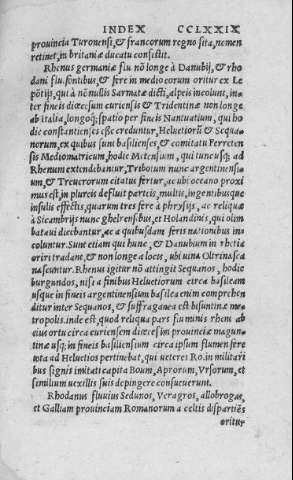 INDEX CCLXXIX
prouincia Turonensi, & francorum regno sita, nemen
retinet, in britaniæ ducatu consistit.
Rhenus germaniæ flu. nõ longe à Danubij, & rho
dani flu. fontibus, & fere in medio eorum oritur ex Le
põtijs, qui à nõ nullis Sarmatæ dicti, alpeis incolunt, in
ter fineis diœcesum curiensis & Tridentinæ non longe
ab italia, longoq; spatio per fineis Nantuatium, qui ho
die constantienses esse creduntur, Heluetiorũ & Sequa
norum, ex quibus sunt basilienses, & comitatu Ferreten
sis Mediomatricum, hodie Mitensium, qui tunc usq; ad
Rhenum extendebantur, Tribotum nunc argentinensi
um, & Treuerorum citatus fertur, ac ubi oceano proxi
mus est, in plureis defluit parteis, multis, ingentibusque
insulis effectis, quarum tres fere à phrysijs, ac reliquæ
à Sicambrijs nunc ghelrensibus, et Holandinis, qui olim
bataui dicebantur, ac a quibusdam feris nationibus in
coluntur. Sunt etiam qui hunc, & Danubium in rhetia
oriri tradant, & non longe a locis, ubi una Oltrina sca
na scuntur. Rhenus igitur nõ attingit Sequanos, hodie
burgundos, nisi a finibus Heluetiorum circa basileam
usque in fineis argentinensium basilea enim comprehen
ditur inter Sequanos, & suffraganea est bisuntinæ me
tropolis. inde est, quod reliqua pars fluminis rheni ab
eius ortu circa curiensem diœcesim prouinciæ magun
tinæ usq; in fineis basiliensium circa ipsum flumen fere
tota ad Heluetios pertinebat, qui ueteres Ro. in militari
bus signis imitati capita Boum, Aprorum, Vrsorum, et
similium uexillis suis depingere consueuerunt.
Rhodanus fluuius Sedunos, Veragros, allobrogas,
et Galliam prouinciam Romanorum a celtis dispartiẽs
oritur